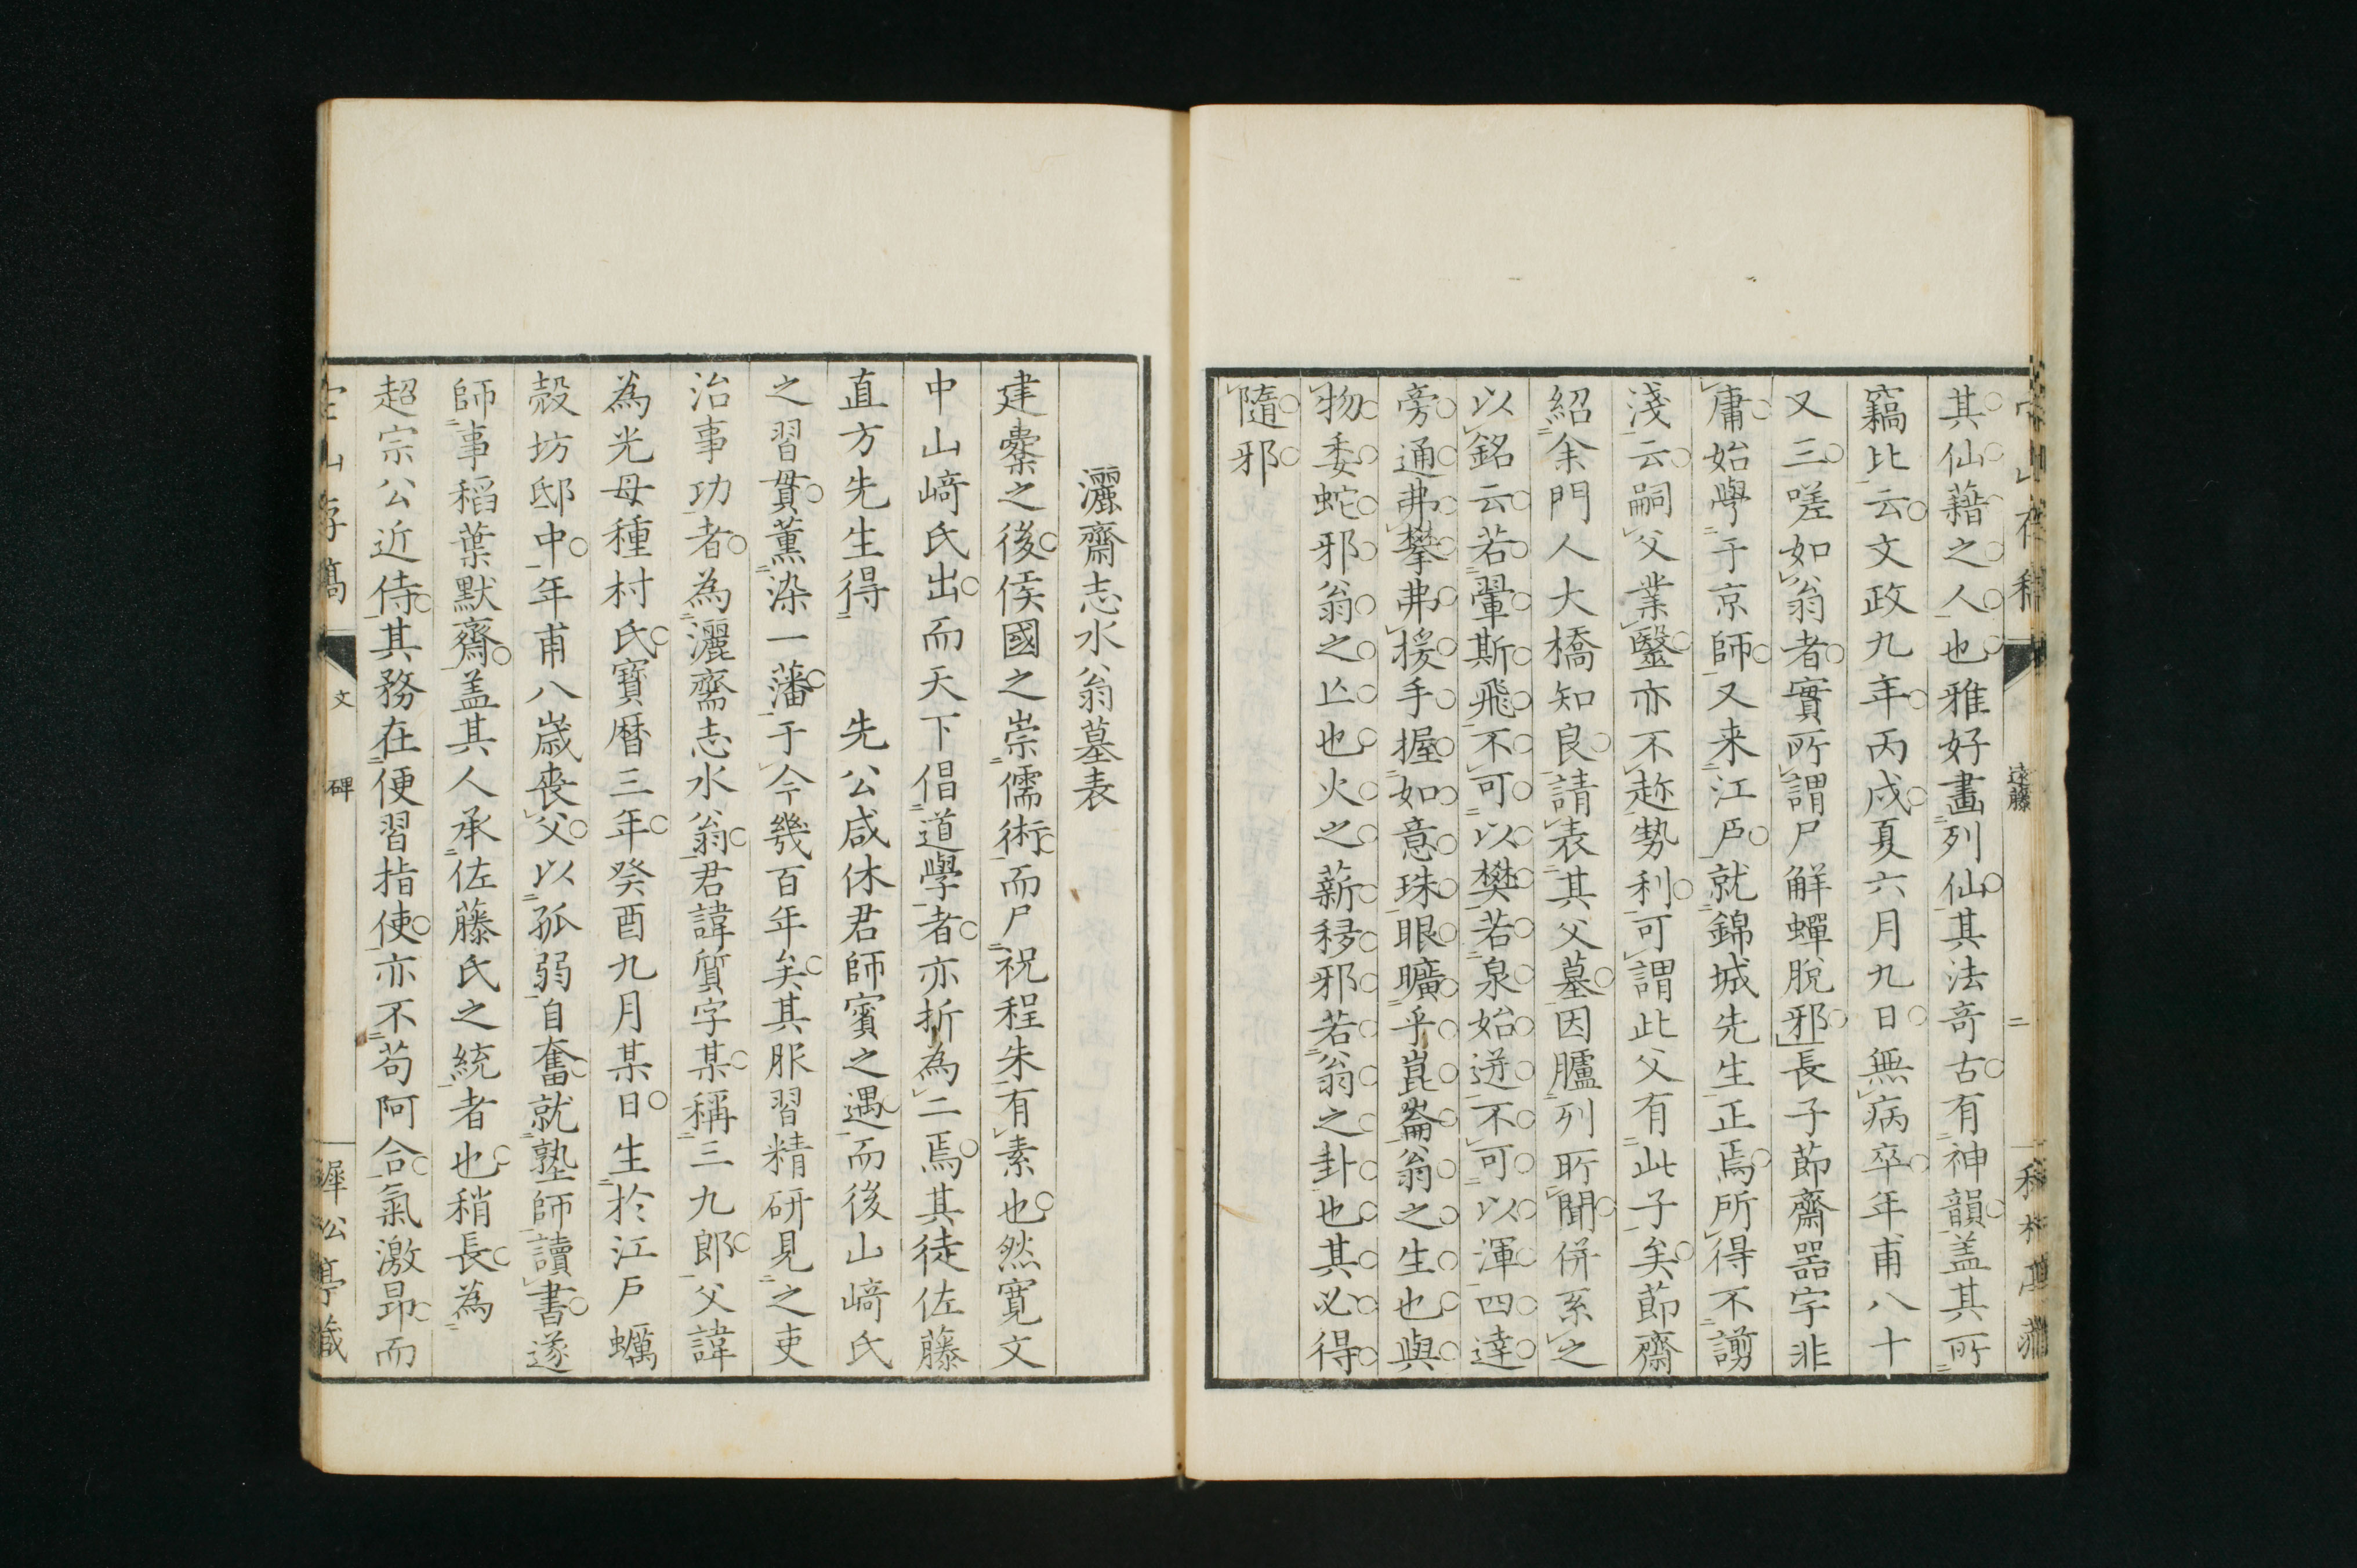 其仙藉之人也雅好畫列仙其法奇古有神韻盖其所
竊比云文政九年丙戌夏六月九日無病卒年甫八十
又三嗟如翁者實所謂尸解蟬脫邪長子節齋器宇非
庸始學于京師又来江戶就錦城先生正焉所得不謭
淺云嗣父業醫亦不趂勢利可謂此父有此子矣節齋
紹余門人大橋知良請表其父墓因臚列所聞併系之
以銘云若翬斯飛不可以樊若泉始迸不可以渾四達
旁通弗攀弗援手握如意珠眼曠乎崑崙翁之生也與
物委蛇邪翁之亾也火之薪移邪若翁之卦也其必得
隨邪
遠藤
二
灑齋志水翁墓表
建櫜之後侯國之崇儒術而尸祝程朱有素也然寬文
中山﨑氏出而天下倡道學者亦折為二焉其徒佐藤
直方先生得　先公咸休君師賓之遇而後山﨑氏
之習貫薰染一藩于今幾百年矣其服習精研見之吏
治事功者為灑齋志水翁君諱質字某稱三九郎父諱
為光母種村氏寶曆三年癸酉九月某日生於江戶蠣
殼坊邸中年甫八歲喪父以孤弱自奮就塾師讀書遂
師事稻葉默齋盖其人承佐藤氏之統者也稍長為
超宗公近侍其務在便習指使亦不苟阿合氣激昂而
文
碑